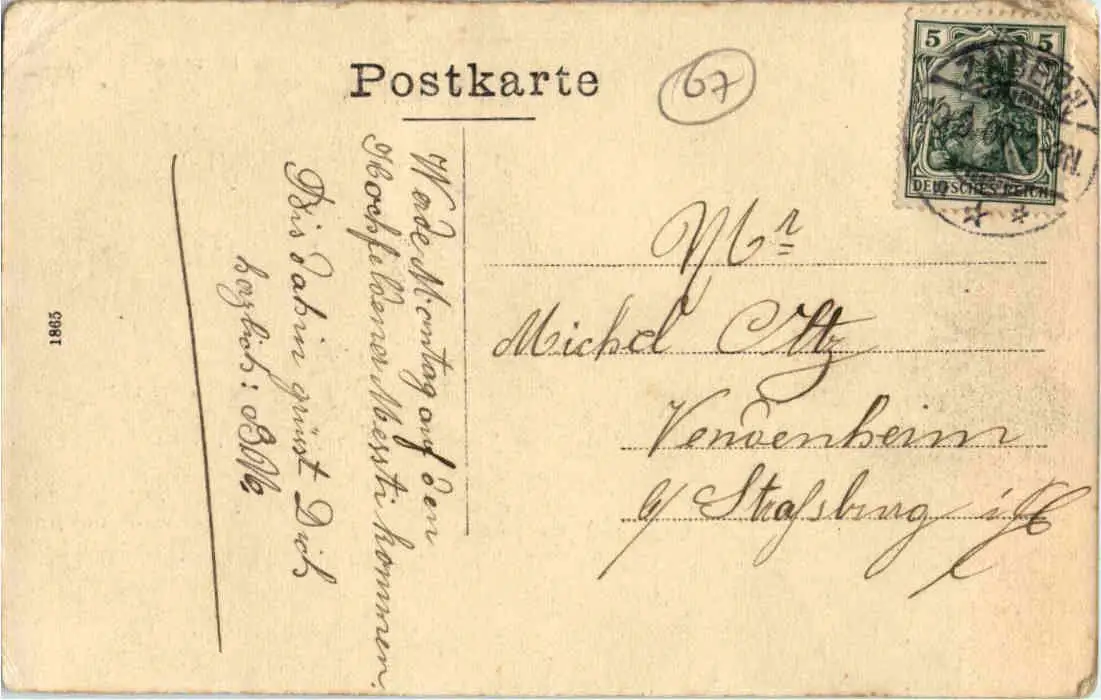 Postkarte
67
5 5
DEUTSCHES REICH
ZABERN
Werde Montag auf den
Hochfeldener Messti kommen.
Bis dahin grüsst Dich
herzlich: B.M.
Mr
Michel Ltz
Vendenheim
b/ Strassburg i/E
1865